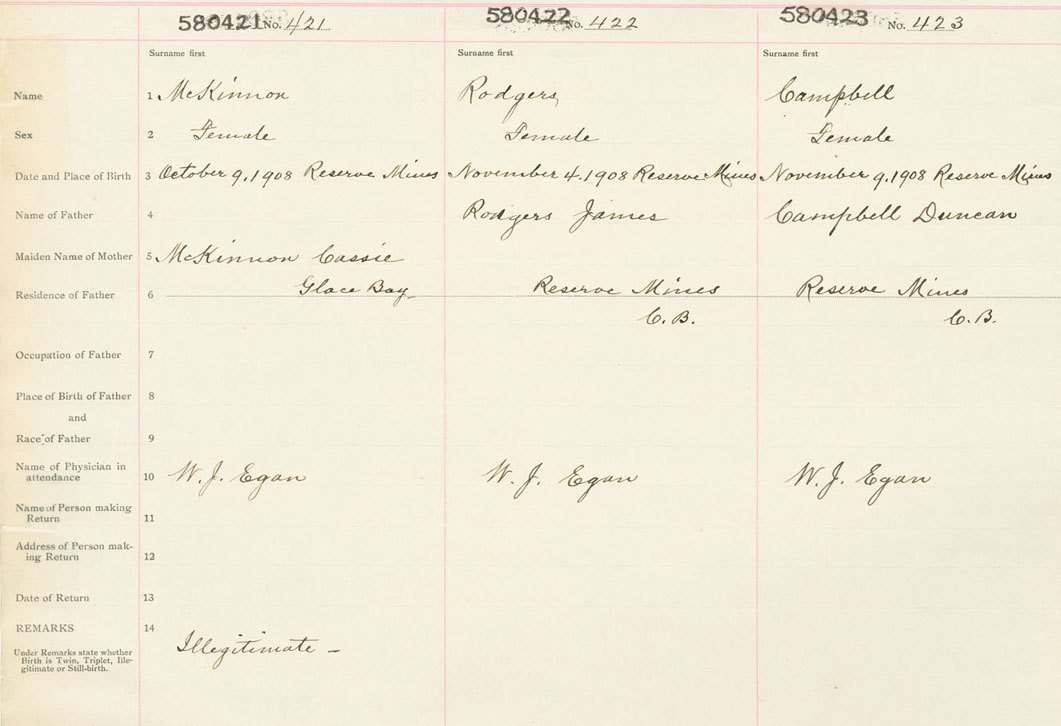 580421 No. 421 580422 No. 422 580423 No. 423
Surname first Surname first Surname first
Name 1 McKinnon Rodgers Campbell
Sex 2 Female Female Female
Date and Place of Birth 3 October 9, 1908 Reserve Mines November 4, 1908 Reserve Mines November 9, 1908 Reserve Mines
Name of Father 4 Rodgers James Campbell Duncan
Maiden Name of Mother 5 McKinnon Cassie
Residence of Father 6 Glace Bay Reserve Mines Reserve Mines
C. B. C. B.
Occupation of Father 7
Place of Birth of Father 8
and
Race of Father 9
Name of Physician in
attendance 10 W. J. Egan W. J. Egan W. J. Egan
Name of Person making
Return 11
Address of Person mak-
ing Return 12
Date of Return 13
REMARKS 14
Illegitimate –
Under Remarks state whether
Birth is Twin, Triplet, Ille-
gitimate or Still-birth.